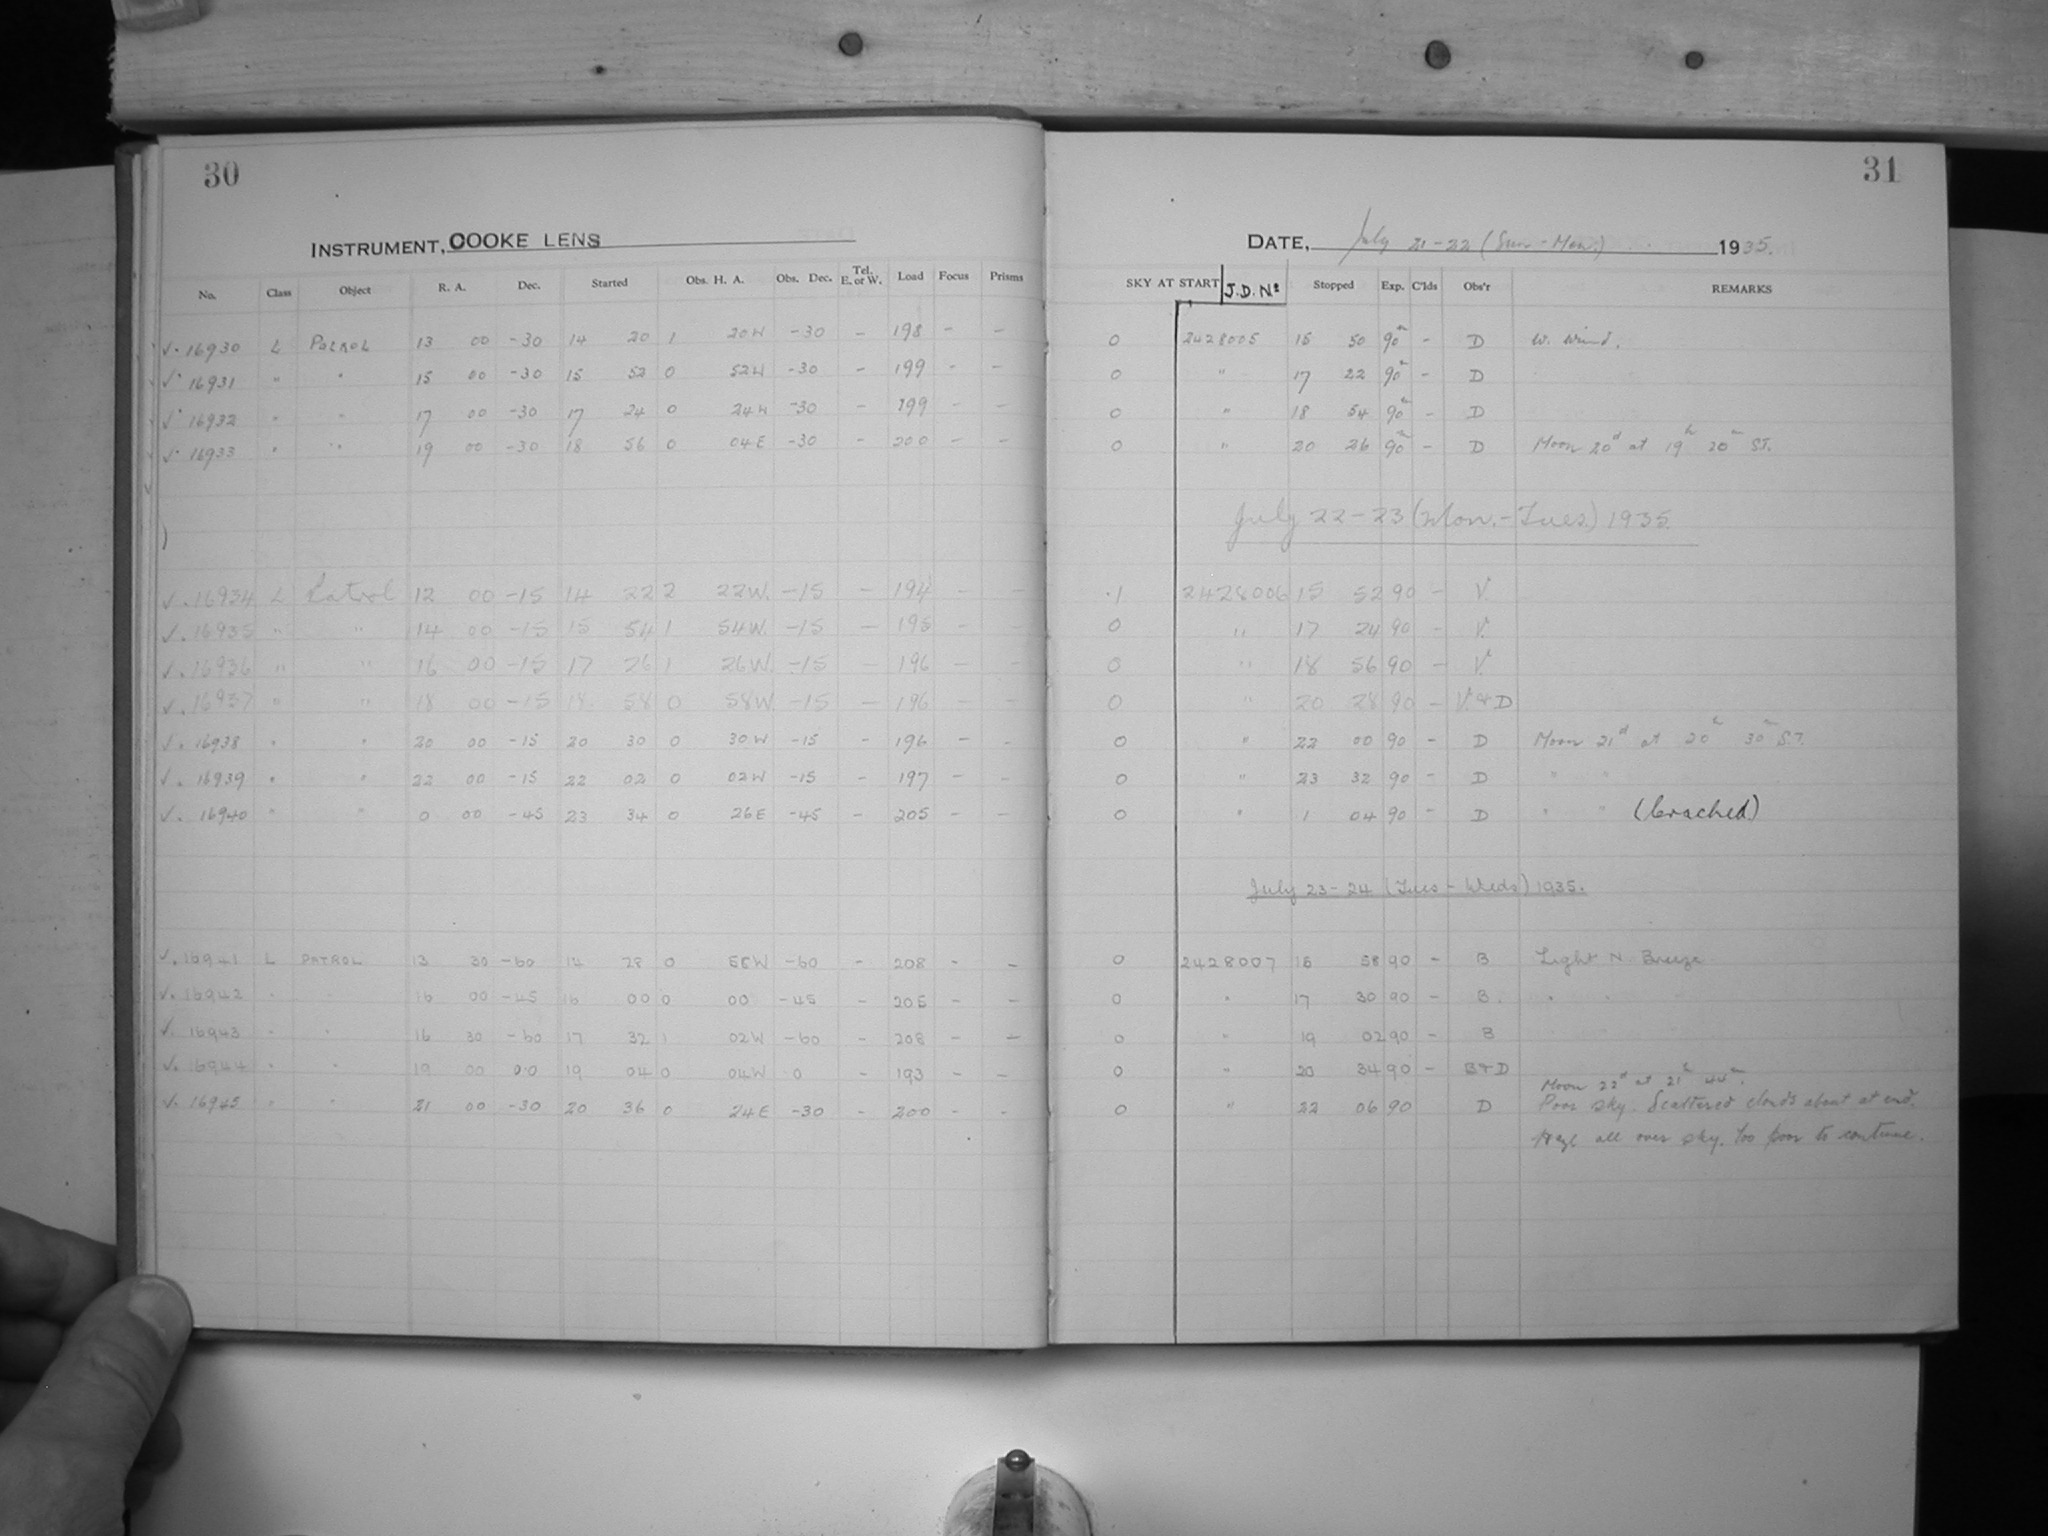 30
INSTRUMENT, COOKE LENS
No. Class Object R. A. Dec. Started Obs. H. A. Obs. Dec. Tel. E. or W. Load Focus Prisms
✓. 16930 L PATROL 13 00 -30 14 20 1 20W -30 - 198 - -
✓. 16931 " " 15 00 -30 15 52 0 52W -30 - 199 - -
✓. 16932 " " 17 00 -30 17 24 0 24W -30 - 199 - -
✓. 16933 " " 19 00 -30 18 56 0 04E -30 - 200 - -
✓. 16934 L Patrol 12 00 -15 14 22 2 22W. -15 - 194 - -
✓. 16935 " " 14 00 -15 15 54 1 54W. -15 - 195 - -
✓. 16936 " " 16 00 -15 17 26 1 26W. -15 - 196 - -
✓. 16937 " " 18 00 -15 18 58 0 58W. -15 - 196 - -
✓. 16938 " " 20 00 -15 20 30 0 30W -15 - 196 - -
✓. 16939 " " 22 00 -15 22 02 0 02W -15 - 197 - -
✓. 16940 " " 0 00 -45 23 34 0 26E -45 - 205 - -
✓. 16941 L PATROL 13 30 -60 14 28 0 58W -60 - 208 - -
✓. 16942 " " 16 00 -45 16 00 0 00 -45 - 205 - -
✓. 16943 " " 16 30 -60 17 32 1 02W -60 - 208 - -
✓. 16944 " " 19 00 00 19 04 0 04W 0 - 193 - -
✓. 16945 " " 21 00 -30 20 36 0 24E -30 - 200 - -
31
DATE, July 21-22 (Sun-Mon.) 1935.
SKY AT START J.D. Nº Stopped Exp. C'lds Obs'r REMARKS
0 2428005 15 50 90m - D W. Wind.
0 " 17 22 90m - D
0 " 18 54 90m - D
0 " 20 26 90m - D Moon 20d at 19h 20m S.T.
July 22-23 (Mon.-Tues.) 1935.
.1 2428006 15 52 90 - V.
0 " 17 24 90 - V.
0 " 18 56 90 - V.
0 " 20 28 90 - V. & D
0 " 22 00 90 - D Moon 21d at 20h 30m S.T.
0 " 23 32 90 - D " "
0 " 1 04 90 - D " " (Cracked)
July 23-24 (Tues-Weds) 1935.
0 2428007 15 58 90 - B Light N. Breeze
0 " 17 30 90 - B. " "
0 " 19 02 90 - B
0 " 20 34 90 - B & D
Moon 22d at 21h 44m.
0 " 22 06 90 D Poor sky. Scattered clouds about at end.
Haze all over sky. Too poor to continue.